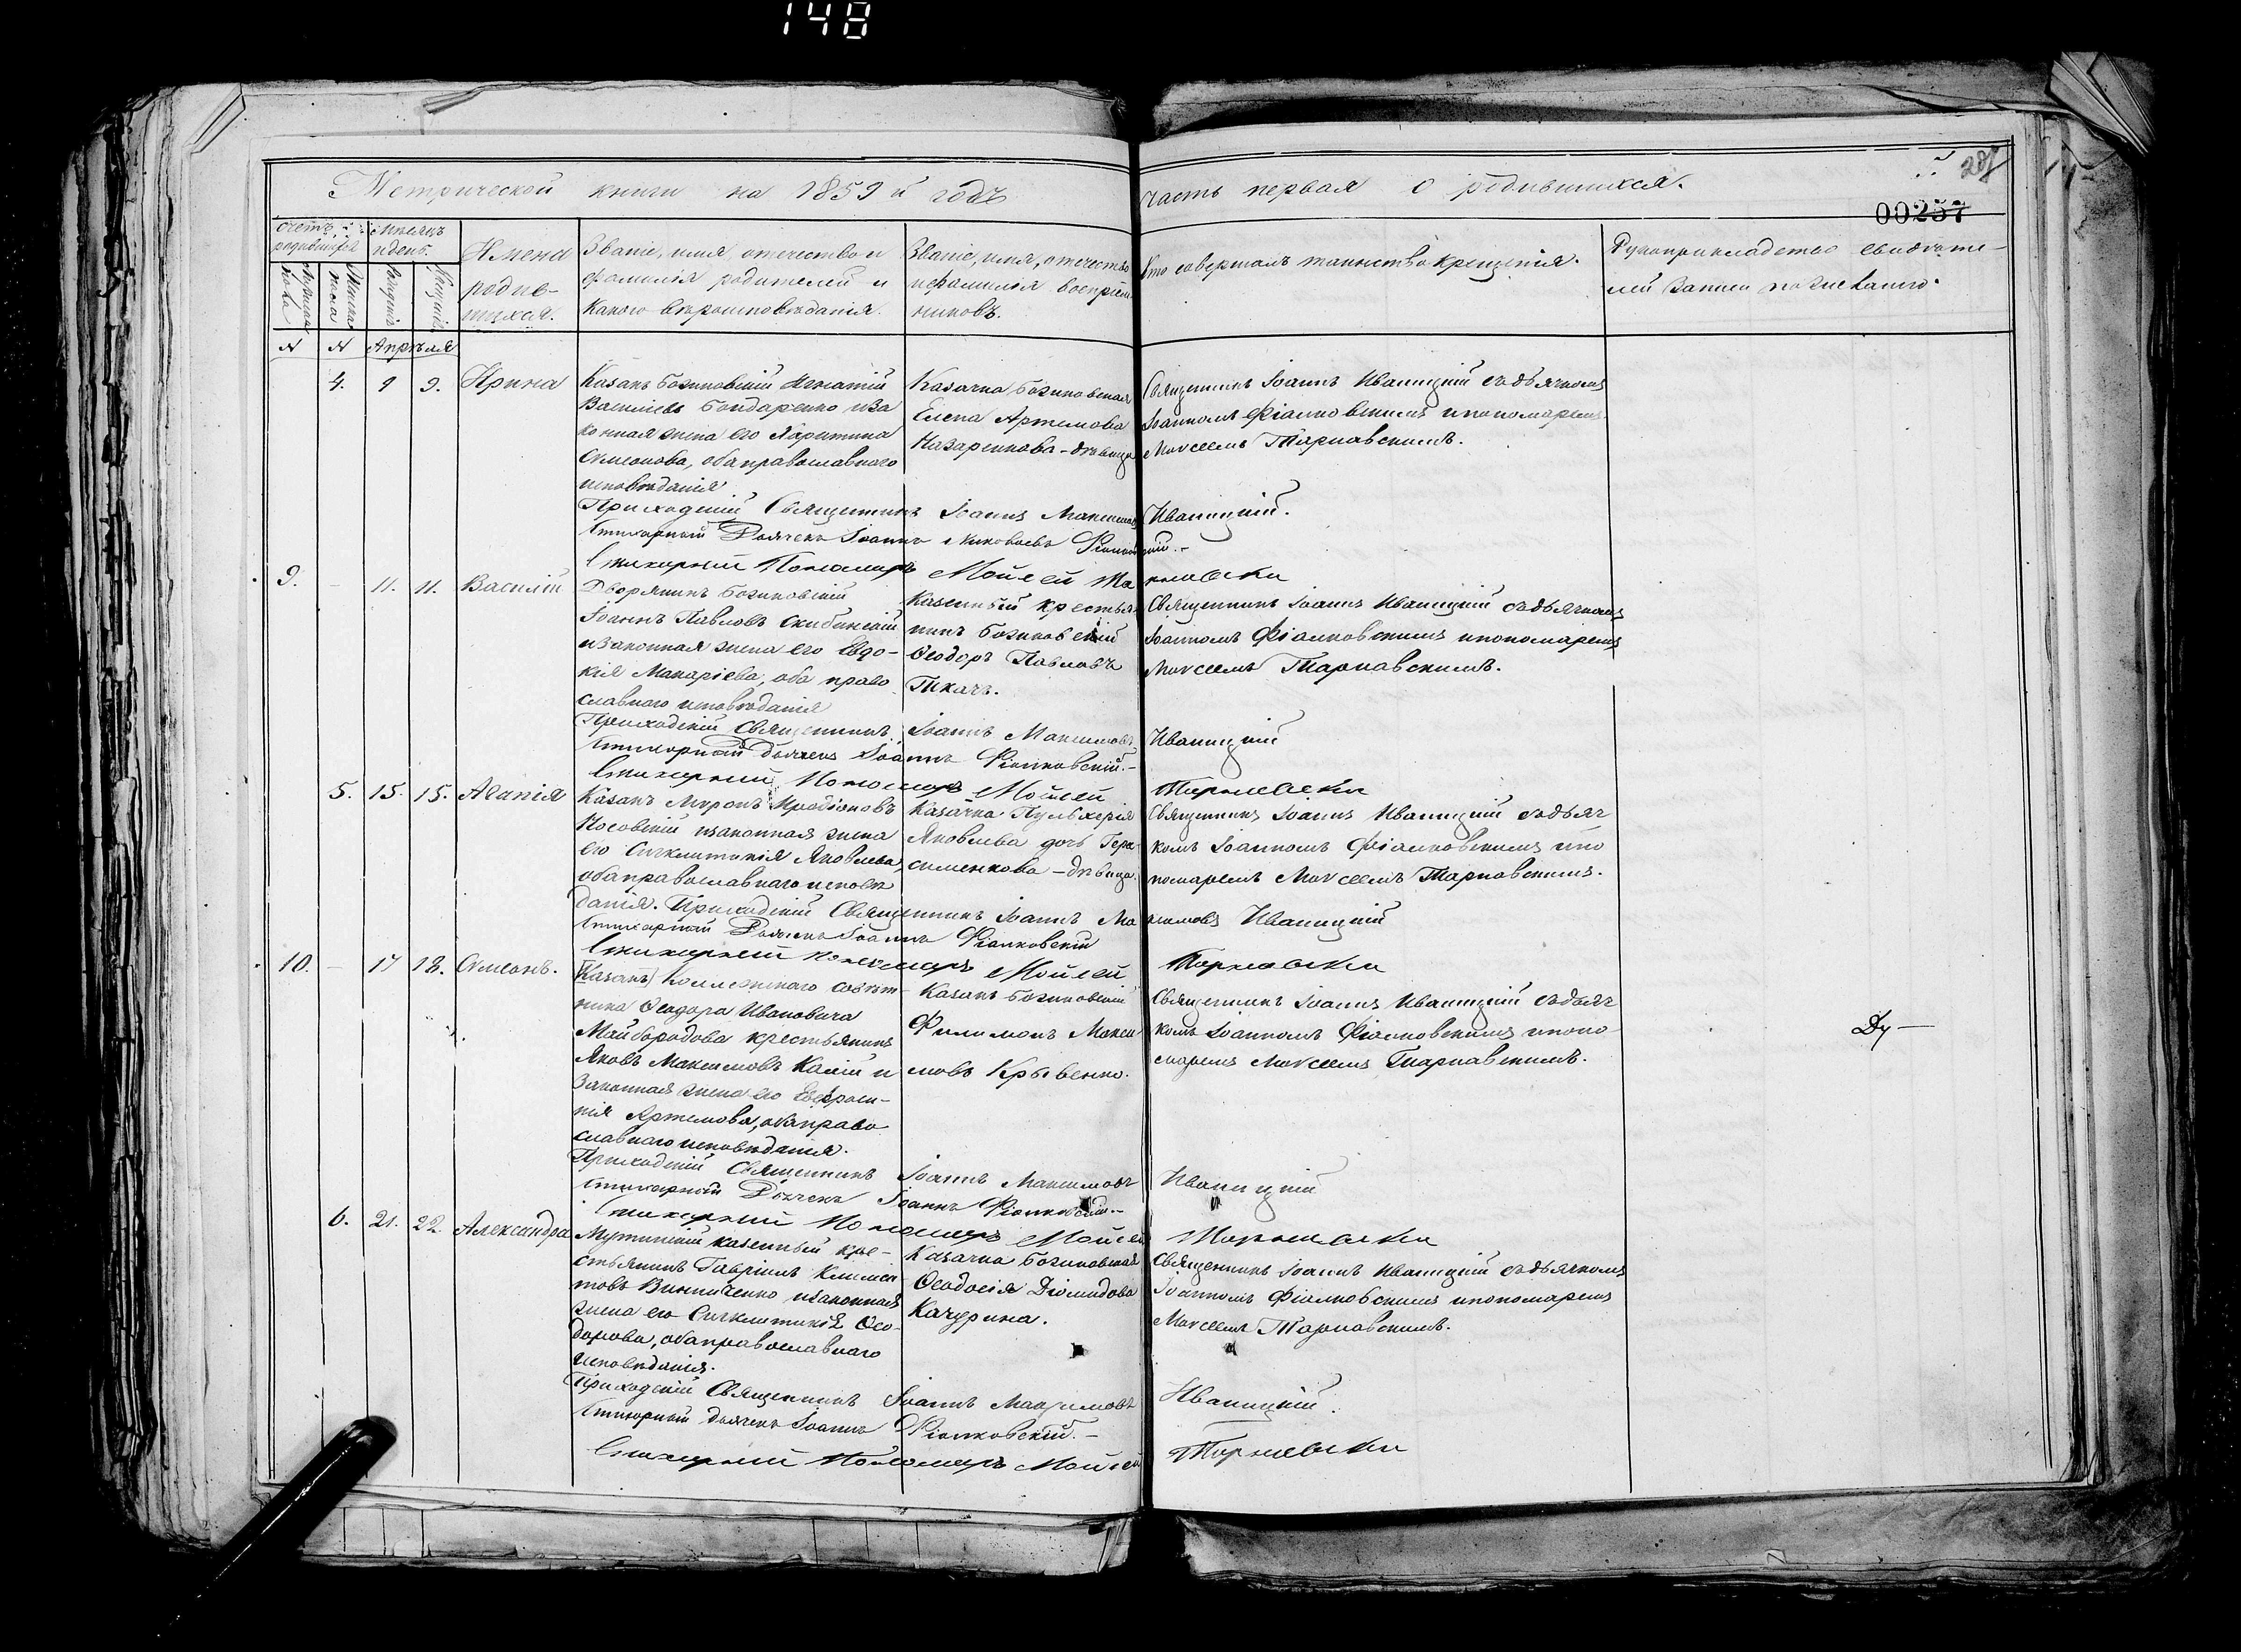 148
Метрической книги на 1859й годъ
часть первая о родившихся.
00257
Счетъ родившихся
Мѣсяцъ и день.
Имена родив-
шихся.
Званіе, имя, отечество и
фамилія родителей и
какого вѣроисповѣданія.
Званіе, имя, отечество
и фамилія воспріем
никовъ.
Кто совершалъ таинство крещенія.
Рукоприкладство свидѣте-
лей записи по желанію.
Мужеска
пола
Женска
пола
Рожденія
Крещенія
№ № Апрѣля
4. 9 9. Ирина
Казакъ Бозиковскій Игнатій
Василіевъ Бондаренко и за
конная жена его Харитина
Симеонова, оба православнаго
исповѣданія
Казачка Бозиковская
Елена Артемова
Назаренкова - дѣвица
Священникъ Іоаннъ Иваницкій съ дьячкомъ
Іоанномъ Фіалковскимъ и пономаремъ
Моѵсеемъ Тарнавскимъ.
Приходскій Священникъ Іоаннъ Максимовъ Иваницкій.
Стихарный Дьячекъ Іоаннъ Фіалковскій.-
Стихарный Пономаръ Мойсей Тарнавски
9. - 11. 11. Василій
Дворянинъ Бозиковскій
Іоаннъ Павловъ Скибинскій
и законная жена его Евдо-
кія Макаріева, оба право
славнаго исповѣданія
Казенный крестья
нинъ Бозиковскій
Ѳеодоръ Павловъ
Ткачъ.
Священникъ Іоаннъ Иваницкій съ дьячкомъ
Іоанномъ Фіалковскимъ и пономаремъ
Моѵсеемъ Тарнавскимъ.
Приходскій Священникъ Іоаннъ Максимовъ Иваницкій
Стихарный Дьячекъ Іоаннъ Фіалковскій.-
Стихарный Пономаръ Мойсей Тарнавски
5. 15. 15. Агапія
Казакъ Миронъ Иродіоновъ
Носовскій и законная жена
его Сигклитикія Яковлева,
оба православнаго исповѣ
данія.
Казачка Пульхерія
Яковлева дочь Гера
сименкова - дѣвица.
Священникъ Іоаннъ Иваницкій съ дьяч
комъ Іоанномъ Фіалковскимъ и по
номаремъ Моѵсеемъ Тарнавскимъ.
Приходскій Священникъ Іоаннъ Максимовъ Иваницкій
Стихарный Дьячекъ Іоаннъ Фіалковскій
Стихарный Пономаръ Мойсей Тарнавски
10. - 17 18. Симеонъ.
(Казакъ) Коллежскаго совѣт
ника Ѳеодора Ивановича
Майбородова крестьянинъ
Яковъ Максимовъ Калій и
законная жена его Евфроси-
нія Артемова, оба право
славнаго исповѣданія.
Казакъ Бозиковскій
Филимонъ Макси
мовъ Крывенко.
Священникъ Іоаннъ Иваницкій съ дьяч
комъ Іоанномъ Фіалковскимъ и поно
маремъ Моѵсеемъ Тарнавскимъ.
Приходскій Священникъ Іоаннъ Максимовъ Иваницкій
Стихарный Дьячекъ Іоаннъ Фіалковскій.-
Стихарный Пономаръ Мойсей Тарнавски
6. 21. 22. Александра
Мутинскій казенный кре-
стьянинъ Гавріилъ Климен
товъ Винниченко и законная
жена его Сигклитикія Ѳео-
дорова, оба православнаго
исповѣданія.
Казачка Бозиковская
Ѳеодосія Діомидова
Качурина.
Священникъ Іоаннъ Иваницкій съ дьячкомъ
Іоанномъ Фіалковскимъ и пономаремъ
Моѵсеемъ Тарнавскимъ.
Приходскій Священникъ Іоаннъ Максимовъ Иваницкій.
Стихарный Дьячекъ Іоаннъ Фіалковскій.-
Стихарный Пономаръ Мойсей Тарнавски